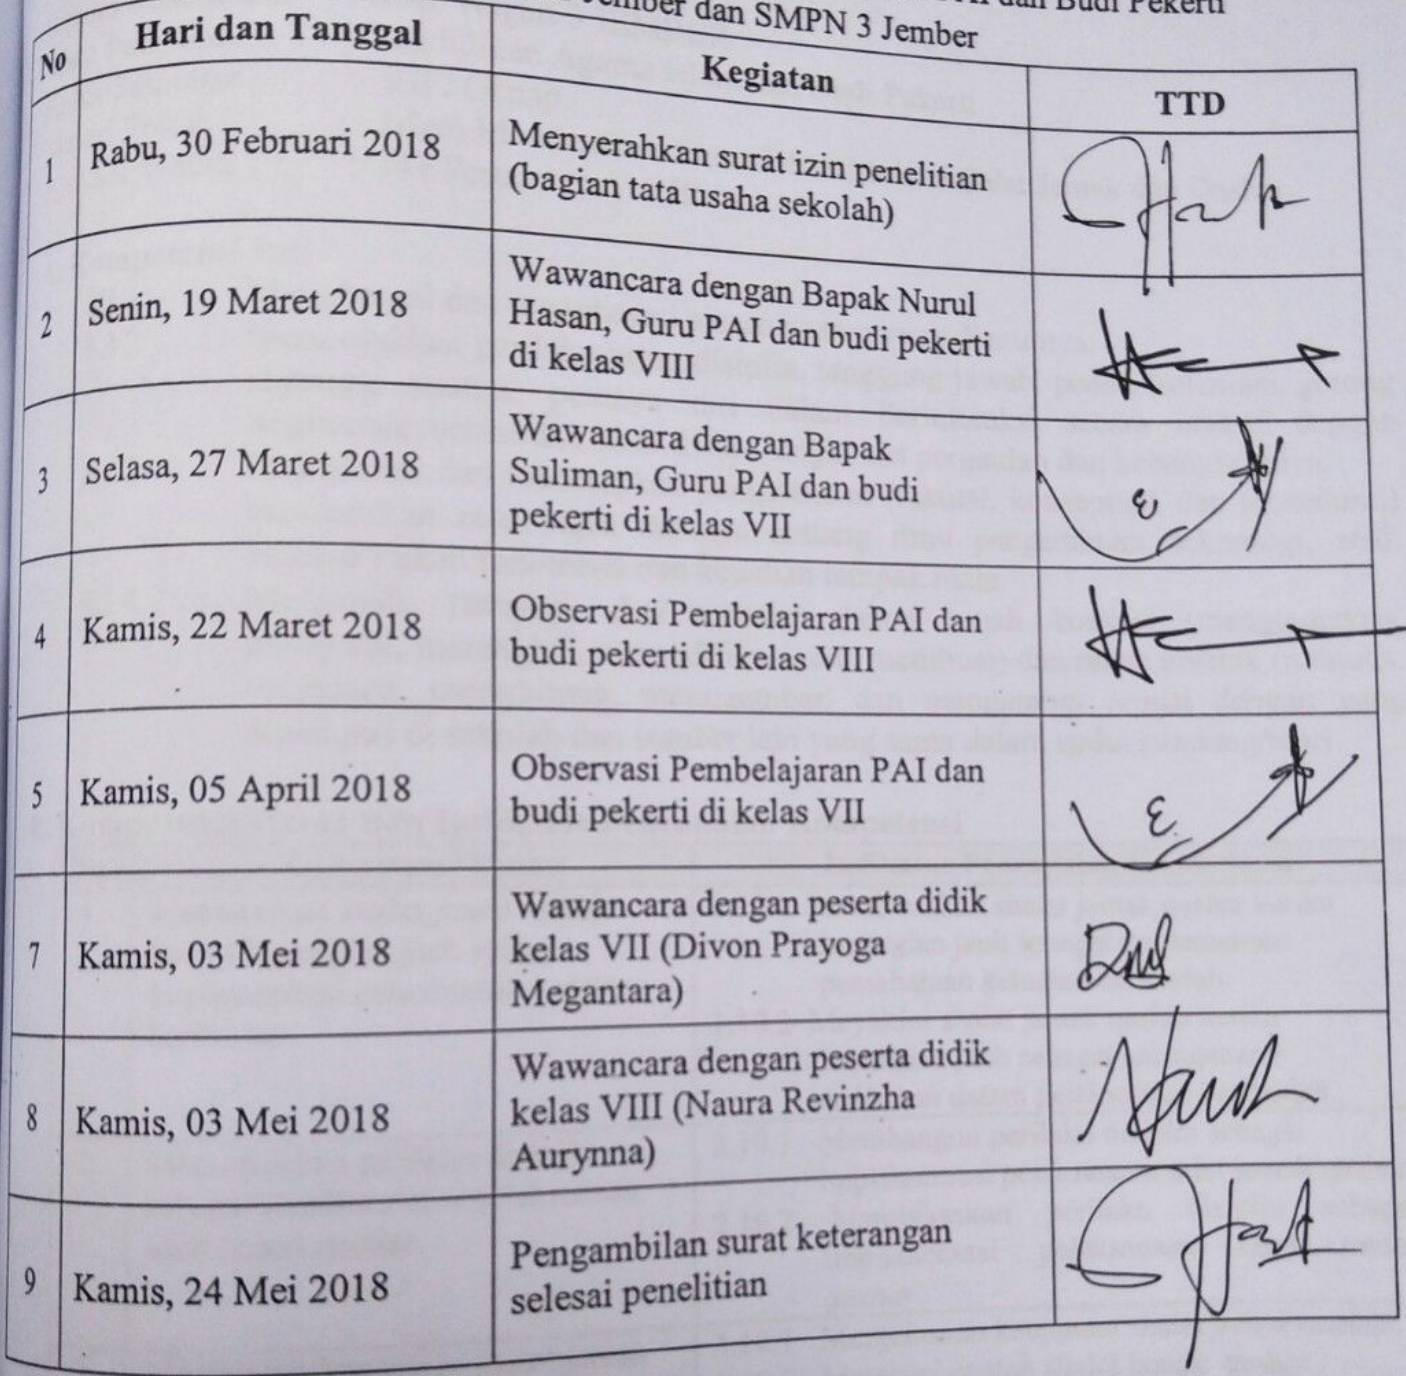 dan Budi Pekerti
Jember dan SMPN 3 Jember
No Hari dan Tanggal Kegiatan TTD
1 Rabu, 30 Februari 2018 Menyerahkan surat izin penelitian
(bagian tata usaha sekolah)
2 Senin, 19 Maret 2018 Wawancara dengan Bapak Nurul
Hasan, Guru PAI dan budi pekerti
di kelas VIII
3 Selasa, 27 Maret 2018 Wawancara dengan Bapak
Suliman, Guru PAI dan budi
pekerti di kelas VII
4 Kamis, 22 Maret 2018 Observasi Pembelajaran PAI dan
budi pekerti di kelas VIII
5 Kamis, 05 April 2018 Observasi Pembelajaran PAI dan
budi pekerti di kelas VII
7 Kamis, 03 Mei 2018 Wawancara dengan peserta didik
kelas VII (Divon Prayoga
Megantara)
8 Kamis, 03 Mei 2018 Wawancara dengan peserta didik
kelas VIII (Naura Revinzha
Aurynna)
9 Kamis, 24 Mei 2018 Pengambilan surat keterangan
selesai penelitian